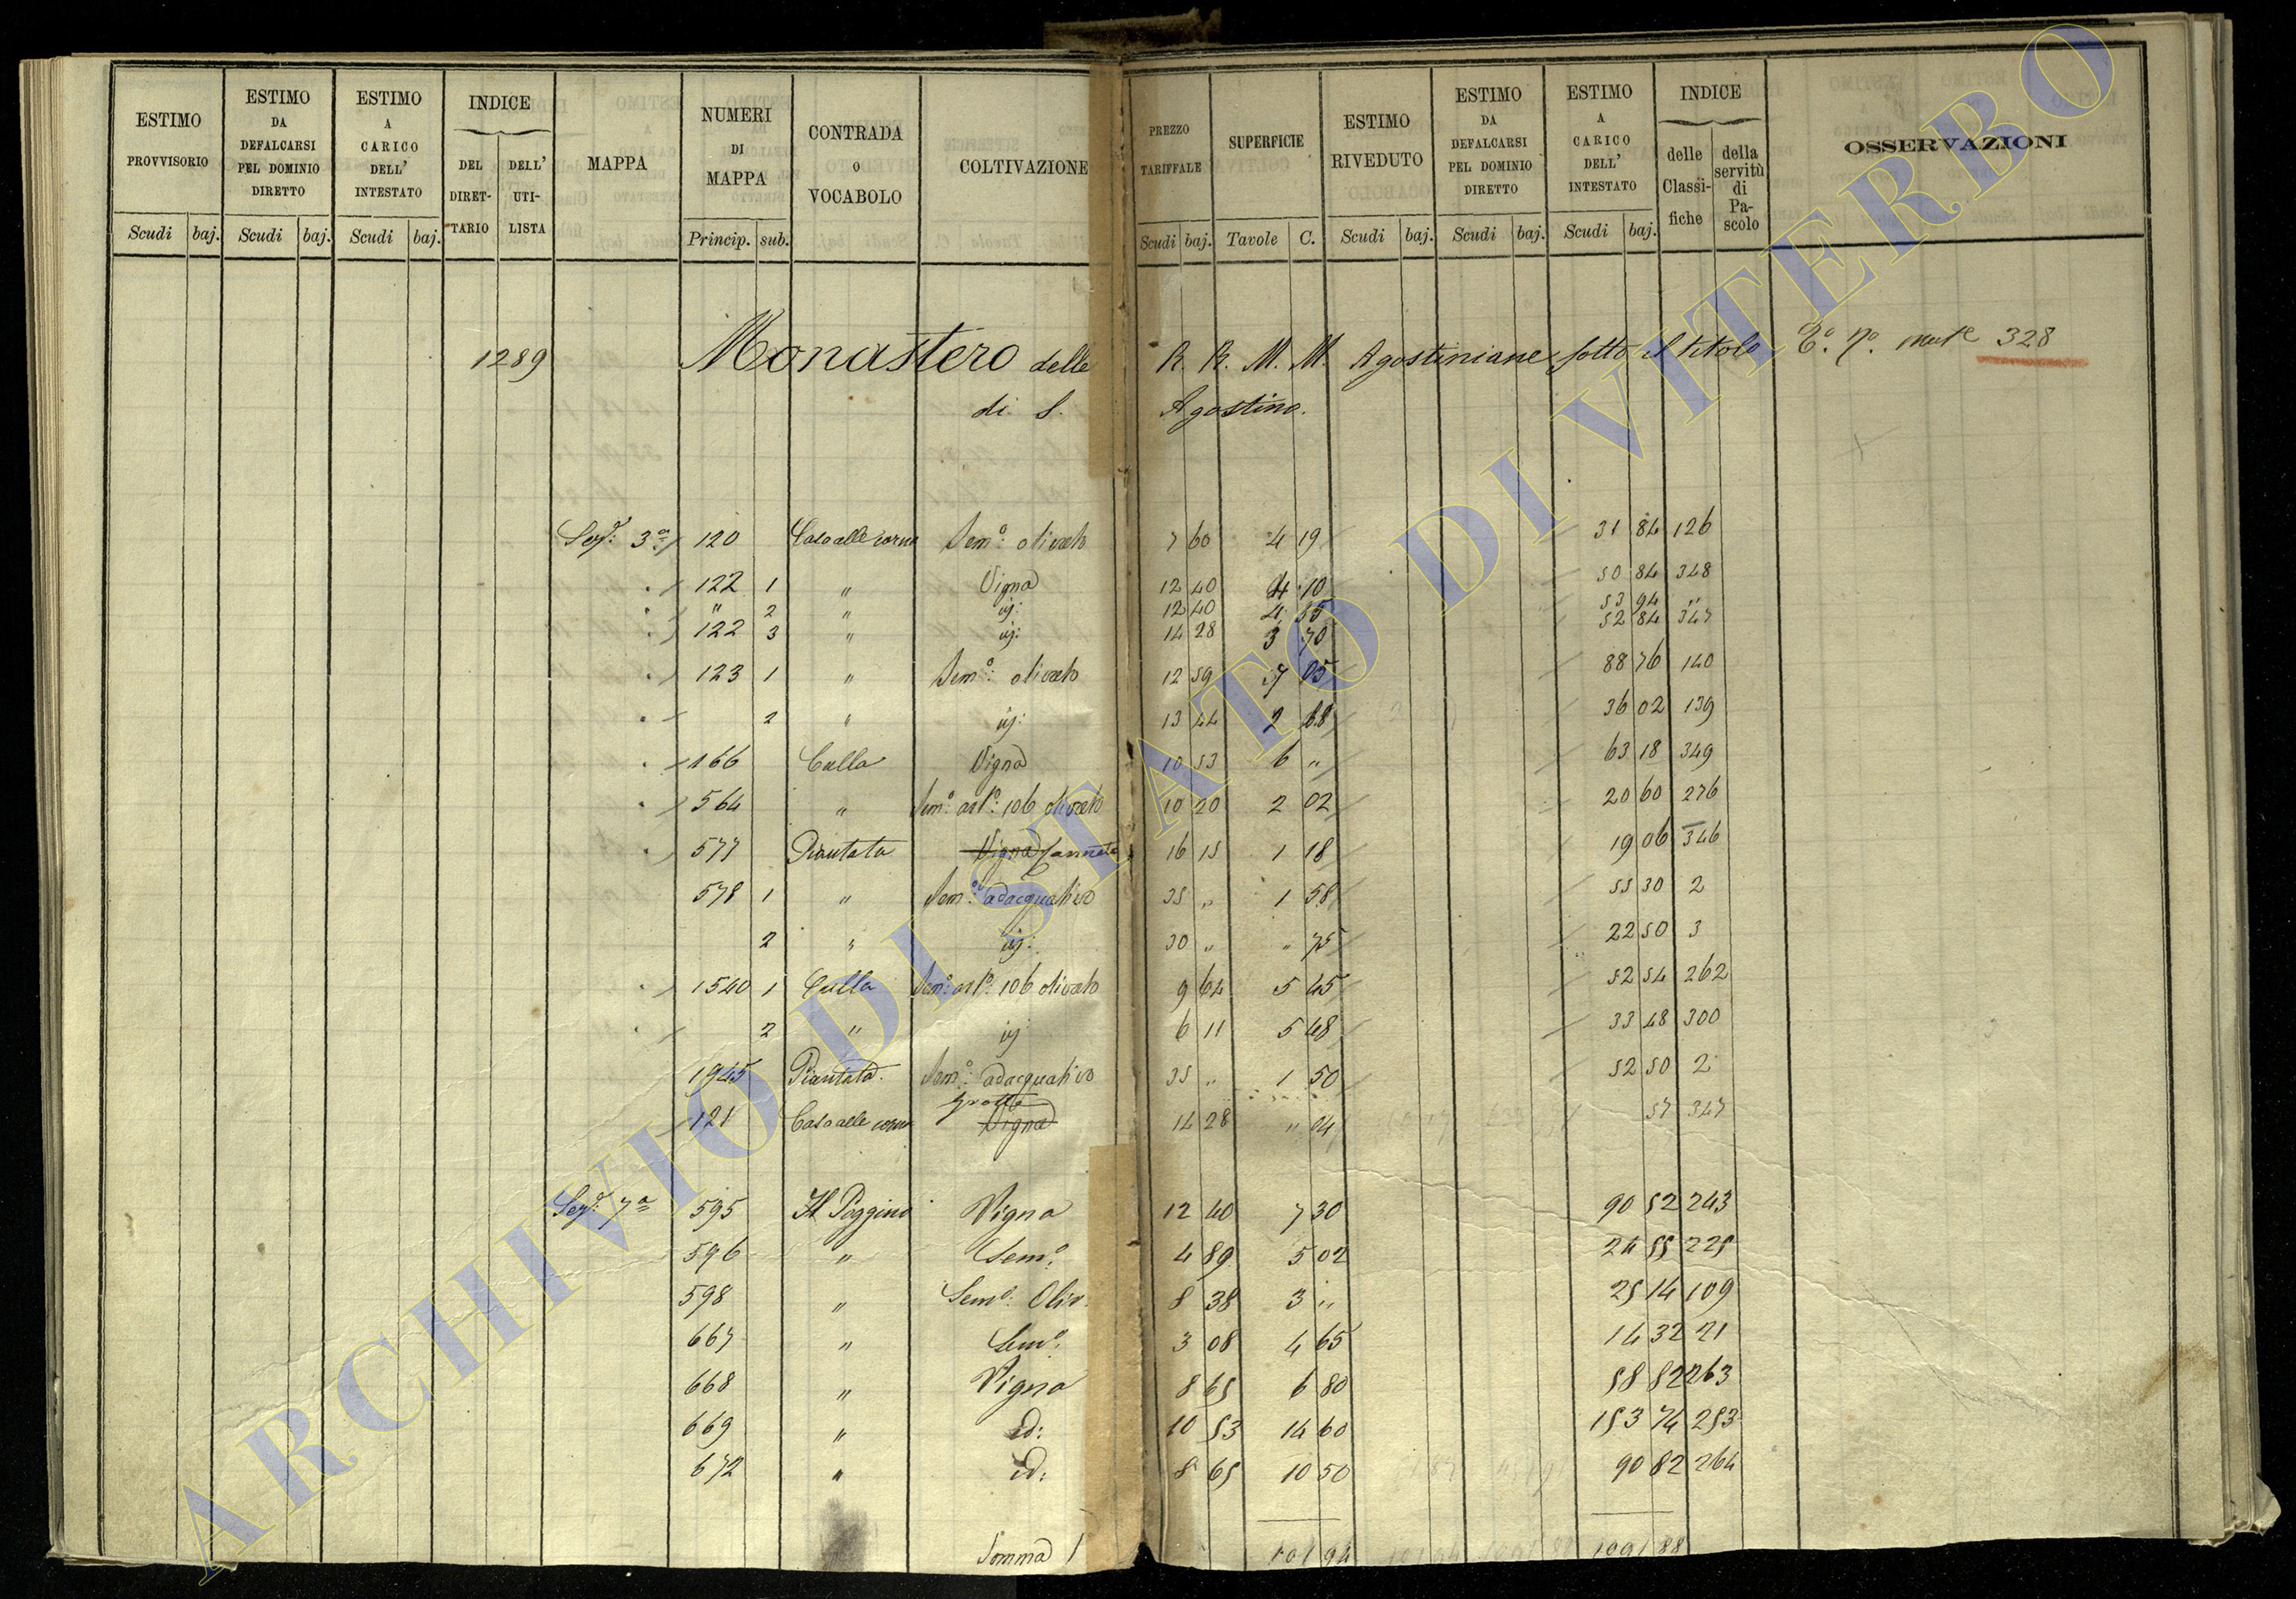 ESTIMO PROVVISORIO | ESTIMO DA DEFALCARSI PEL DOMINIO DIRETTO | ESTIMO A CARICO DELL' INTESTATO | INDICE DEL DIRET-TARIO | DELL' UTI-LISTA | MAPPA | NUMERI DI MAPPA | CONTRADA O VOCABOLO | COLTIVAZIONE | PREZZO TARIFFALE | SUPERFICIE | ESTIMO RIVEDUTO | ESTIMO DA DEFALCARSI PEL DOMINIO DIRETTO | ESTIMO A CARICO DELL' INTESTATO | INDICE delle Classi-fiche | della servitù di Pa-scolo | OSSERVAZIONI
Scudi baj. Scudi baj. Scudi baj. Princip. sub. Scudi baj. Tavole C. Scudi baj. Scudi baj. Scudi baj.
1289 Monastero delle R. R. M. M. Agostiniane sotto il titolo 328
di S. Agostino.
3a 120 Casalle Sem.o olivato 7 60 4 19 31 84 126
122 1 " Vigna 12 40 4 10 50 84 348
" 2 " id: 12 40 4 35 53 94 "
122 3 " id: 14 28 3 70 52 84 347
123 1 " Sem.o olivato 12 59 7 05 88 76 140
2 " id: 13 44 2 68 36 02 139
166 Culla Vigna 10 53 6 " 63 18 349
564 " Sem.o art.o 106 olivato 10 20 2 02 20 60 276
577 Piantata Vigna Canneto 16 15 1 18 19 06 346
578 1 " Sem.o adacquativo 35 " 1 58 55 30 2
2 " id: 30 " " 75 22 50 3
1540 1 Culla Sem.o art.o 106 olivato 9 64 5 45 52 54 262
2 " id 6 11 5 48 33 48 300
1945 Piantata Sem.o adacquativo 35 " 1 50 52 50 2
121 Grotta Vigna 14 28 " 04 57 347
7a 595 Il Poggino Vigna 12 40 7 30 90 52 243
596 " Sem.o 4 89 5 02 24 55 225
598 " Sem.o Oliv. 8 38 3 " 25 14 109
667 " Sem.o 3 08 4 65 14 32 21
668 " Vigna 8 65 6 80 58 82 263
669 " id: 10 53 14 60 153 74 253
672 " id: 8 65 10 50 90 82 264
Somma 101 94 1091 88
ARCHIVIO DI STATO DI VITERBO